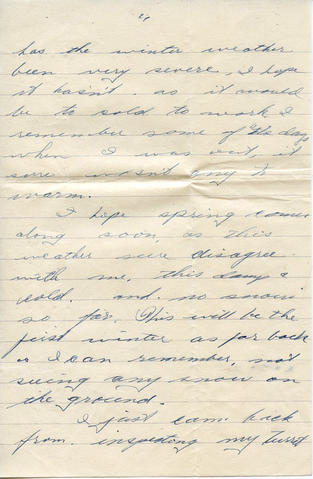 has the winter weather
been very severe, I hope
it hasn't. as it would
be to cold to work I
remember some of the days
when I was out, it
sure wasn't any to
warm.
I hope spring comes
along soon, as this
weather sure disagree
with me, this damp &
cold. and no snow
so far. This will be the
first winter as far back
as I can remember, not
seeing any snow on
the ground.
I just came back
from inspecting my turret